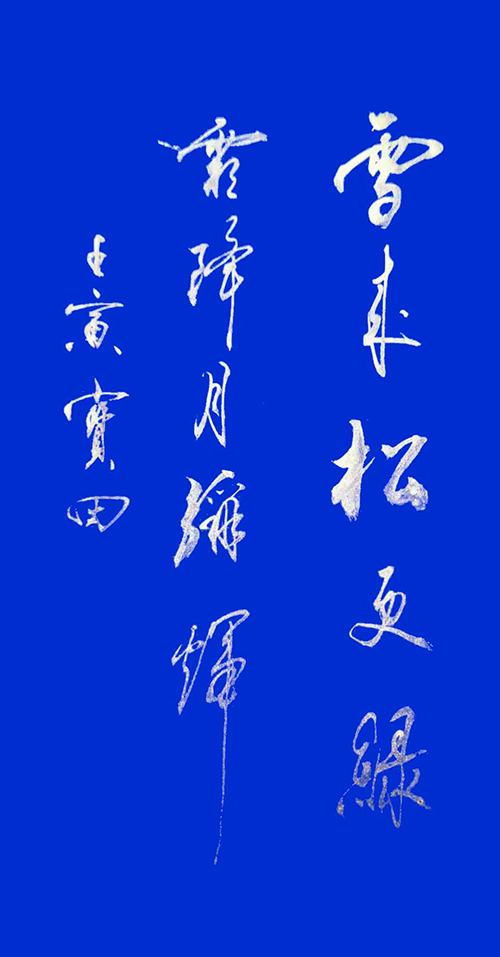 雪來松更緑
霜降月彌輝
壬寅寶田